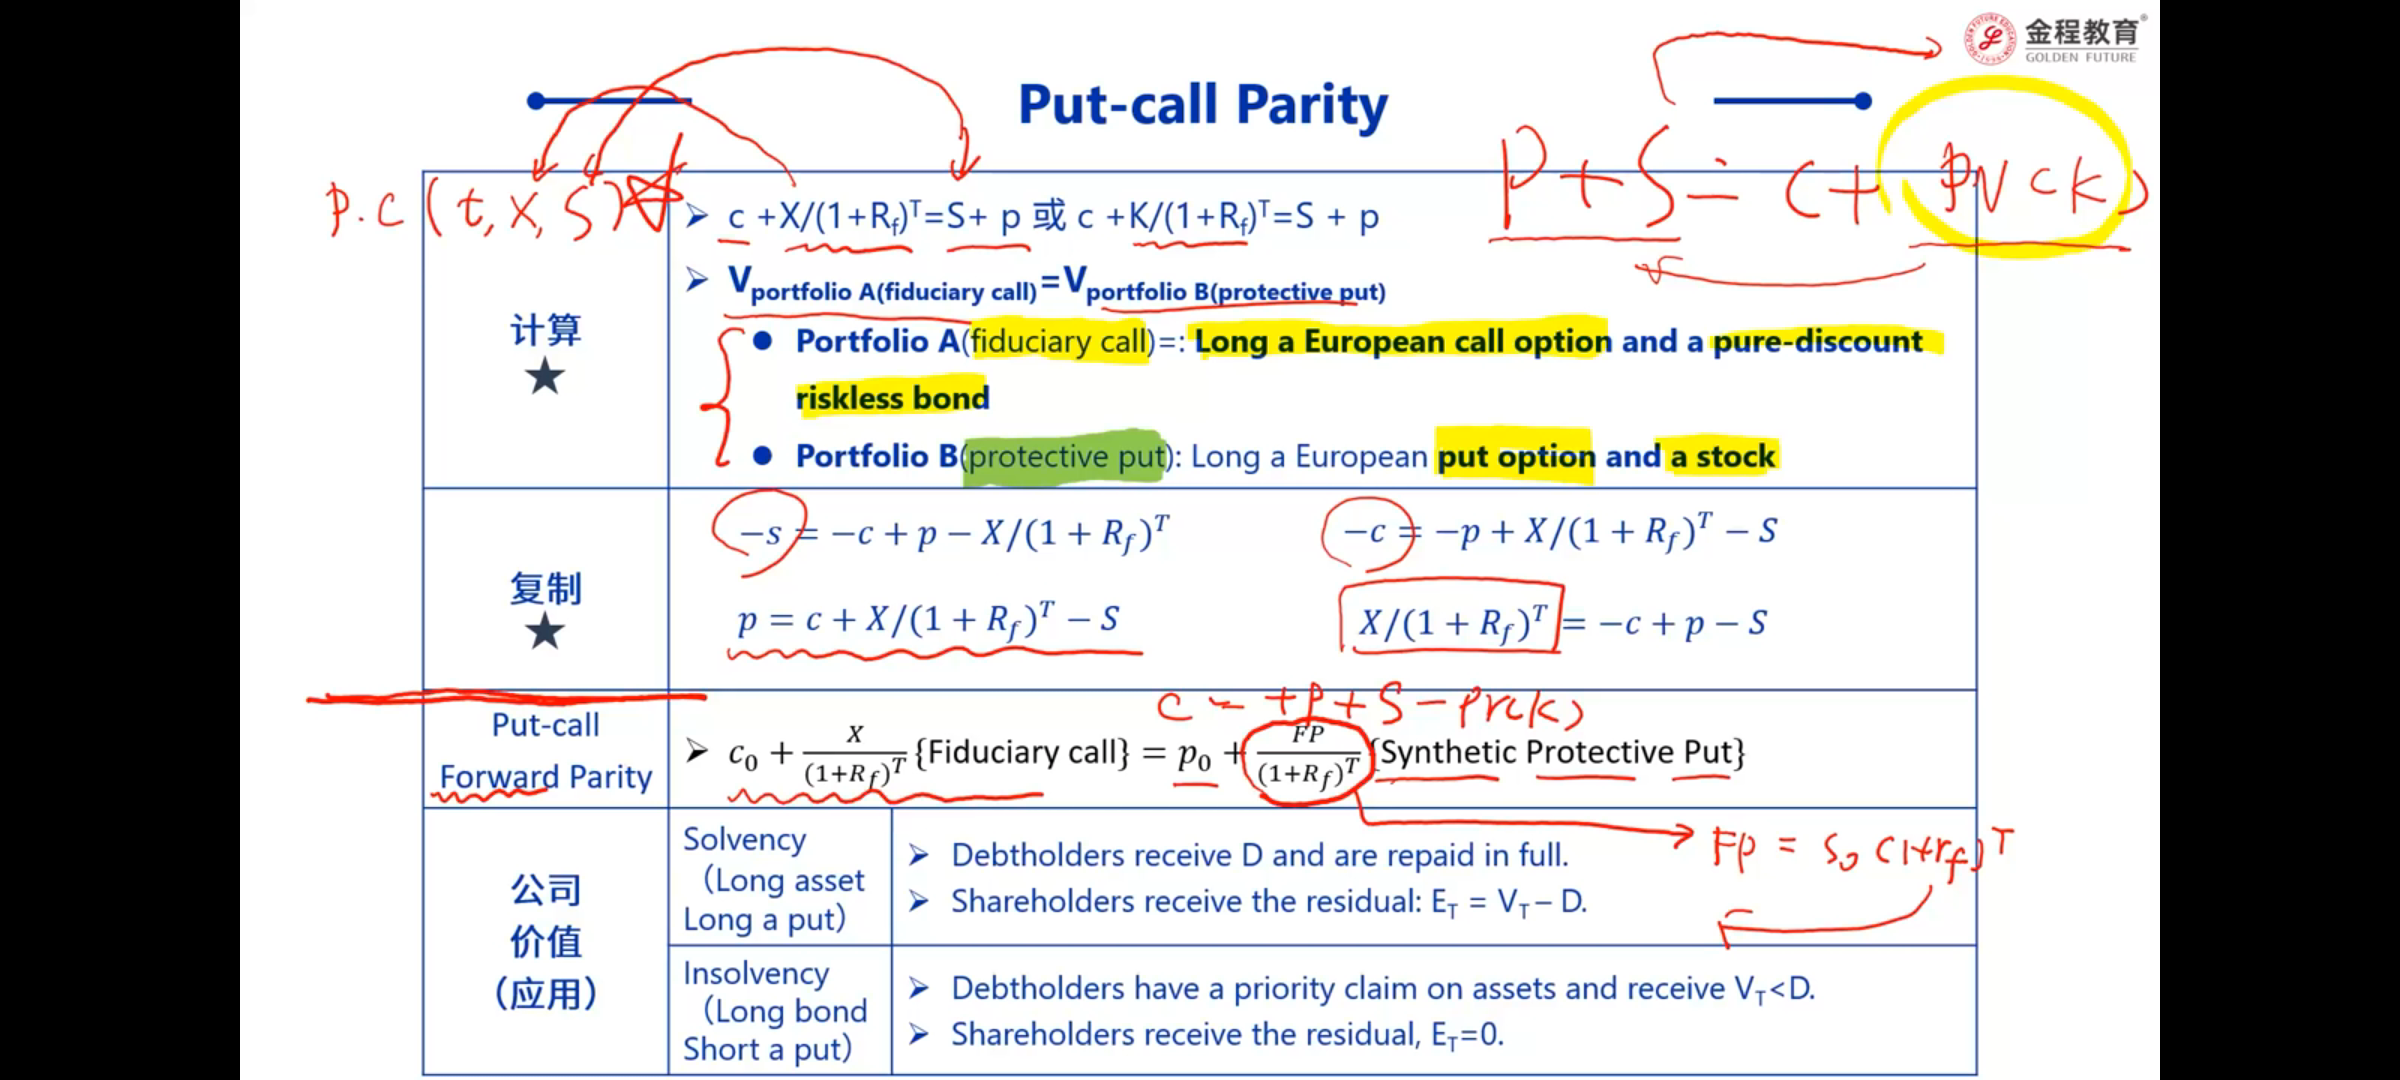 金程教育
GOLDEN FUTURE
Put-call Parity
P+S = C+ PV(K)
P.C (t, X, S)
计算
➤ c +X/(1+R_f)^T=S+ p 或 c +K/(1+R_f)^T=S + p
➤ V_portfolio A(fiduciary call)=V_portfolio B(protective put)
● Portfolio A(fiduciary call)=: Long a European call option and a pure-discount
riskless bond
● Portfolio B(protective put): Long a European put option and a stock
复制
−s = −c + p − X/(1 + R_f)^T
−c = −p + X/(1 + R_f)^T − S
p = c + X/(1 + R_f)^T − S
X/(1 + R_f)^T = −c + p − S
C = +P+S−PV(K)
Put-call
Forward Parity
➤ c_0 + X/(1+R_f)^T {Fiduciary call} = p_0 + FP/(1+R_f)^T {Synthetic Protective Put}
FP = S_0 (1+r_f)^T
公司
价值
（应用）
Solvency
（Long asset
Long a put）
➤ Debtholders receive D and are repaid in full.
➤ Shareholders receive the residual: E_T = V_T – D.
Insolvency
（Long bond
Short a put）
➤ Debtholders have a priority claim on assets and receive V_T<D.
➤ Shareholders receive the residual, E_T=0.